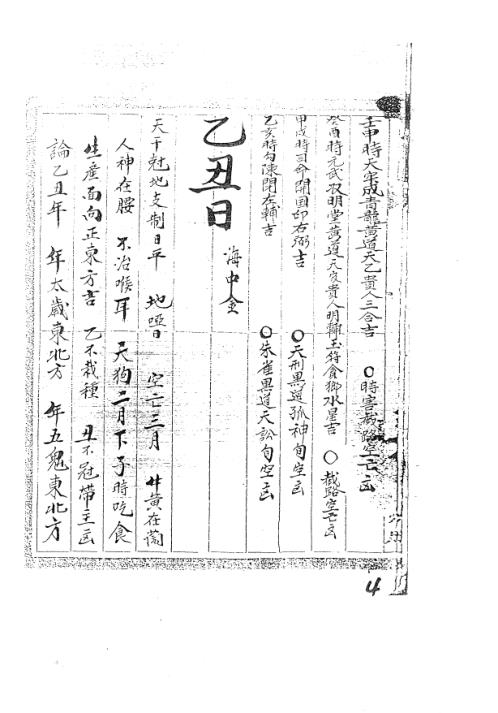 壬申時天牢成青龍黃道天乙貴人三合吉 〇時害截路空亡凶
癸酉時元武收明堂黃道天官貴人明輔玉符貪狼水星吉 〇截路空亡凶
甲戌時司命開國印右弼吉 〇天刑黑道孤神旬空凶
乙亥時勾陳閉左輔吉 〇朱雀黑道天訟旬空凶
乙丑日 海中金
天干尅地支制日平 地啞日 空亡三月 廿黃在
人神在腰 不治喉耳 天狗二月下子時吃食
生産面向正東方吉 乙不栽種 丑不冠帶主凶
論乙丑年 年太歲東北方 年五鬼東北方
4